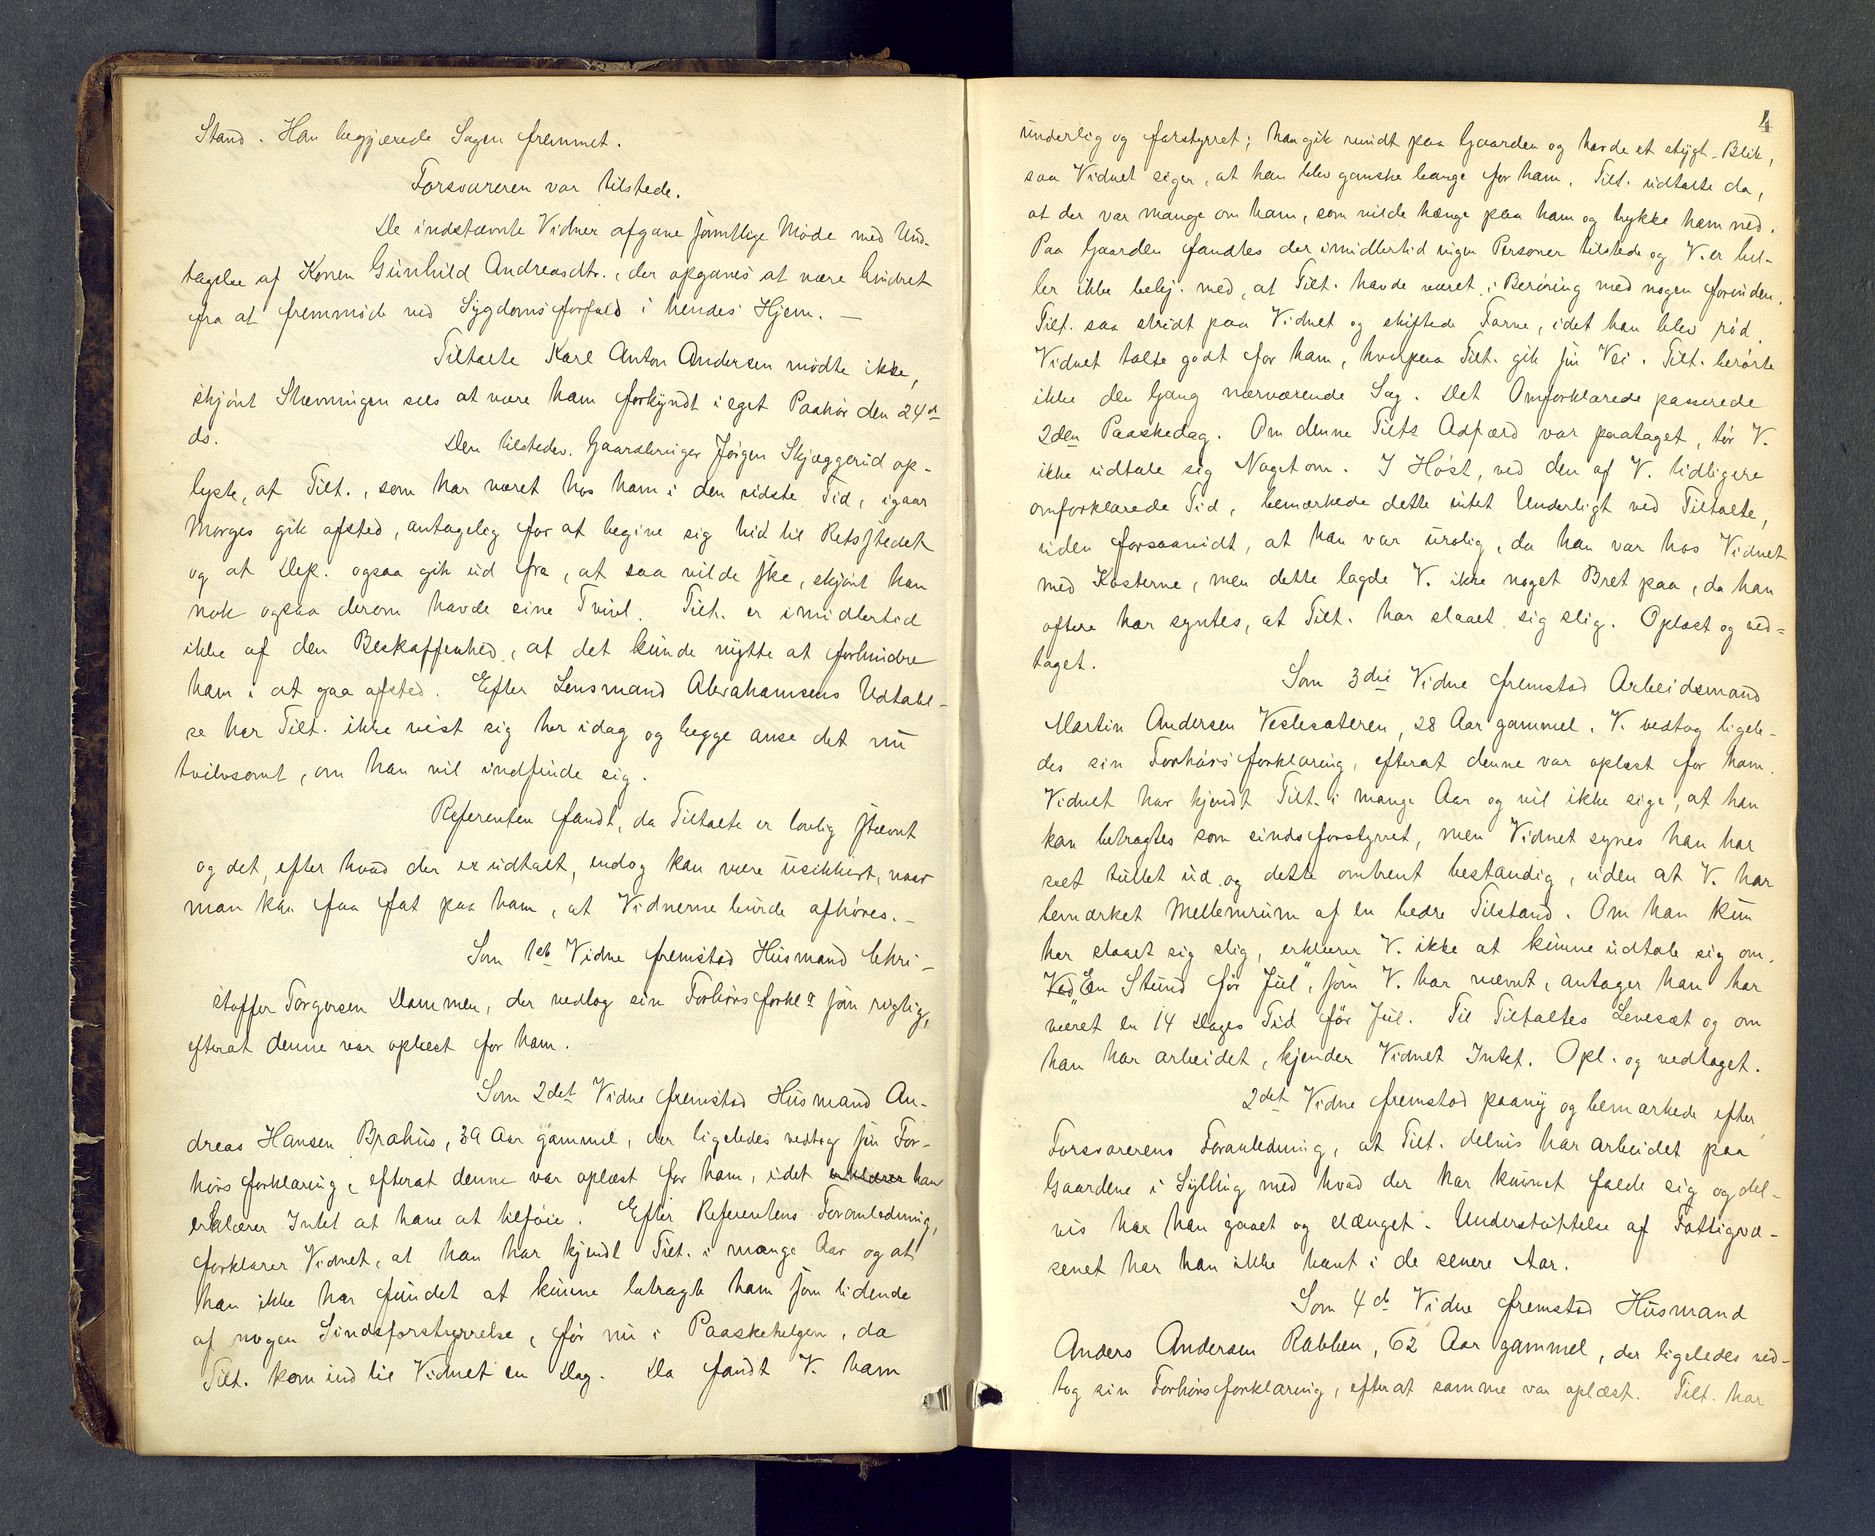 Stand. Han begjærede Sagen fremmet.
Forsvareren var tilstede.
De indstævnte Vidner afgave samtlige Møde med Und-
tagelse af Konen Gunhild Andreasdtr., der opgaves at være hindret
fra at fremmøde ved Sygdomsforfald i hendes Hjem. —
Tiltalte Karl Anton Andersen mødte ikke,
skjønt Stævningen sees at være ham forkyndt i eget Paahør den 24de
ds.
Den tilstedev. Gaardbruger Jørgen Skjæggerud op-
lyste, at Tilt., som har været hos ham i den sidste Tid, igaar
Morges gik afsted, antagelig for at begive sig hid til Retsstedet
og at Dep. ogsaa gik ud fra, at saa vilde ske, skjønt han
nok ogsaa derom havde sine Tvivl. Tilt. er imidlertid
ikke af den Beskaffenhed, at det kunde nytte at forhindre
ham i at gaa afsted. Efter Lensmand Abrahamsens Udtalel-
se har Tilt. ikke vist sig her idag og begge anse det nu
tvilsomt, om han vil indfinde sig.
Referenten fandt, da Tiltalte er lovlig stævnt
og det, efter hvad der er udtalt, endog kan være usikkert, naar
man kan faa fat paa ham, at Vidnerne burde afhøres. —
Som 1ste Vidne fremstod Husmand Chri-
stoffer Torgersen Dammen, der vedtog sin Forhørsforkl. som rigtig,
efterat denne var oplæst for ham.
Som 2det Vidne fremstod Husmand An-
dreas Hansen Brahus, 39 Aar gammel, der ligeledes vedtog sin For-
hørsforklaring, efterat denne var oplæst for ham, idet erklærer han
erklærer Intet at have at tilføie. Efter Referentens Foranledning,
forklarer Vidnet, at han har kjendt Tilt. i mange Aar og at
han ikke har fundet at kunne betragte ham som lidende
af nogen Sindsforstyrrelse, før nu i Paaskehelgen, da
Tilt. kom ind til Vidnet en Dag. Da fandt V. ham
4
underlig og forstyrret; han gik rundt paa Gaarden og havde et stygt Blik,
saa Vidnet siger, at han blev ganske bange for ham. Tilt. udtalte da,
at der var mange om ham, som vilde hænge paa ham og trykke ham ned.
Paa Gaarden fandtes der imidlertid ingen Personer tilstede og V. er hel-
ler ikke bekj. med, at Tilt. havde været i Berøring med nogen forinden.
Tilt. saa stridt paa Vidnet og skiftede Farve, idet han blev rød.
Vidnet talte godt for ham, hvorpaa Tilt. gik sin Vei. Tilt. berørte
ikke den Gang nærværende Sag. Det Omforklarede passerede
2den Paaskedag. Om denne Tilts Adfærd var paataget, tør V.
ikke udtale sig Noget om. I Høst, ved den af V. tidligere
omforklarede Tid, bemærkede dette intet Underligt ved Tiltalte,
uden forsaavidt, at han var urolig, da han var hos Vidnet
med Kosterne, men dette lagde V. ikke noget Bret paa, da han
oftere har syntes, at Tilt. har slaaet sig slig. Oplæst og ved-
taget.
Som 3die Vidne fremstod Arbeidsmand
Martin Andersen Veslesæteren, 28 Aar gammel. V. vedtog ligele-
des sin Forhørsforklaring, efterat denne var oplæst for ham.
Vidnet har kjendt Tilt. i mange Aar og vil ikke sige, at han
kan betragtes som sindsforstyrret, men Vidnet synes han har
seet tullet ud og dette omtrent bestandig, uden at V. har
bemærket Mellemrum af en bedre Tilstand. Om han kun
har slaaet sig slig, erklærer V. ikke at kunne udtale sig om.
Ved "En Stund før Jul", som V. har nævnt, antager han har
været en 14 Dages Tid før Jul. Til Tiltaltes Levesæt og om
han har arbeidet, kjender Vidnet Intet. Opl. og vedtaget.
2det Vidne fremstod paany og bemærkede efter
Forsvarerens Foranledning, at Tilt. delvis har arbeidet paa
Gaardene i Sylling med hvad der har kunnet falde sig og del-
vis har han gaaet og slænget. Understøttelse af Fattigvæ-
senet har han ikke havt i de senere Aar.
Som 4de Vidne fremstod Husmand
Anders Andersen Rabben, 62 Aar gammel, der ligeledes ved-
tog sin Forhørsforklaring, efterat samme var oplæst. Tilt. har